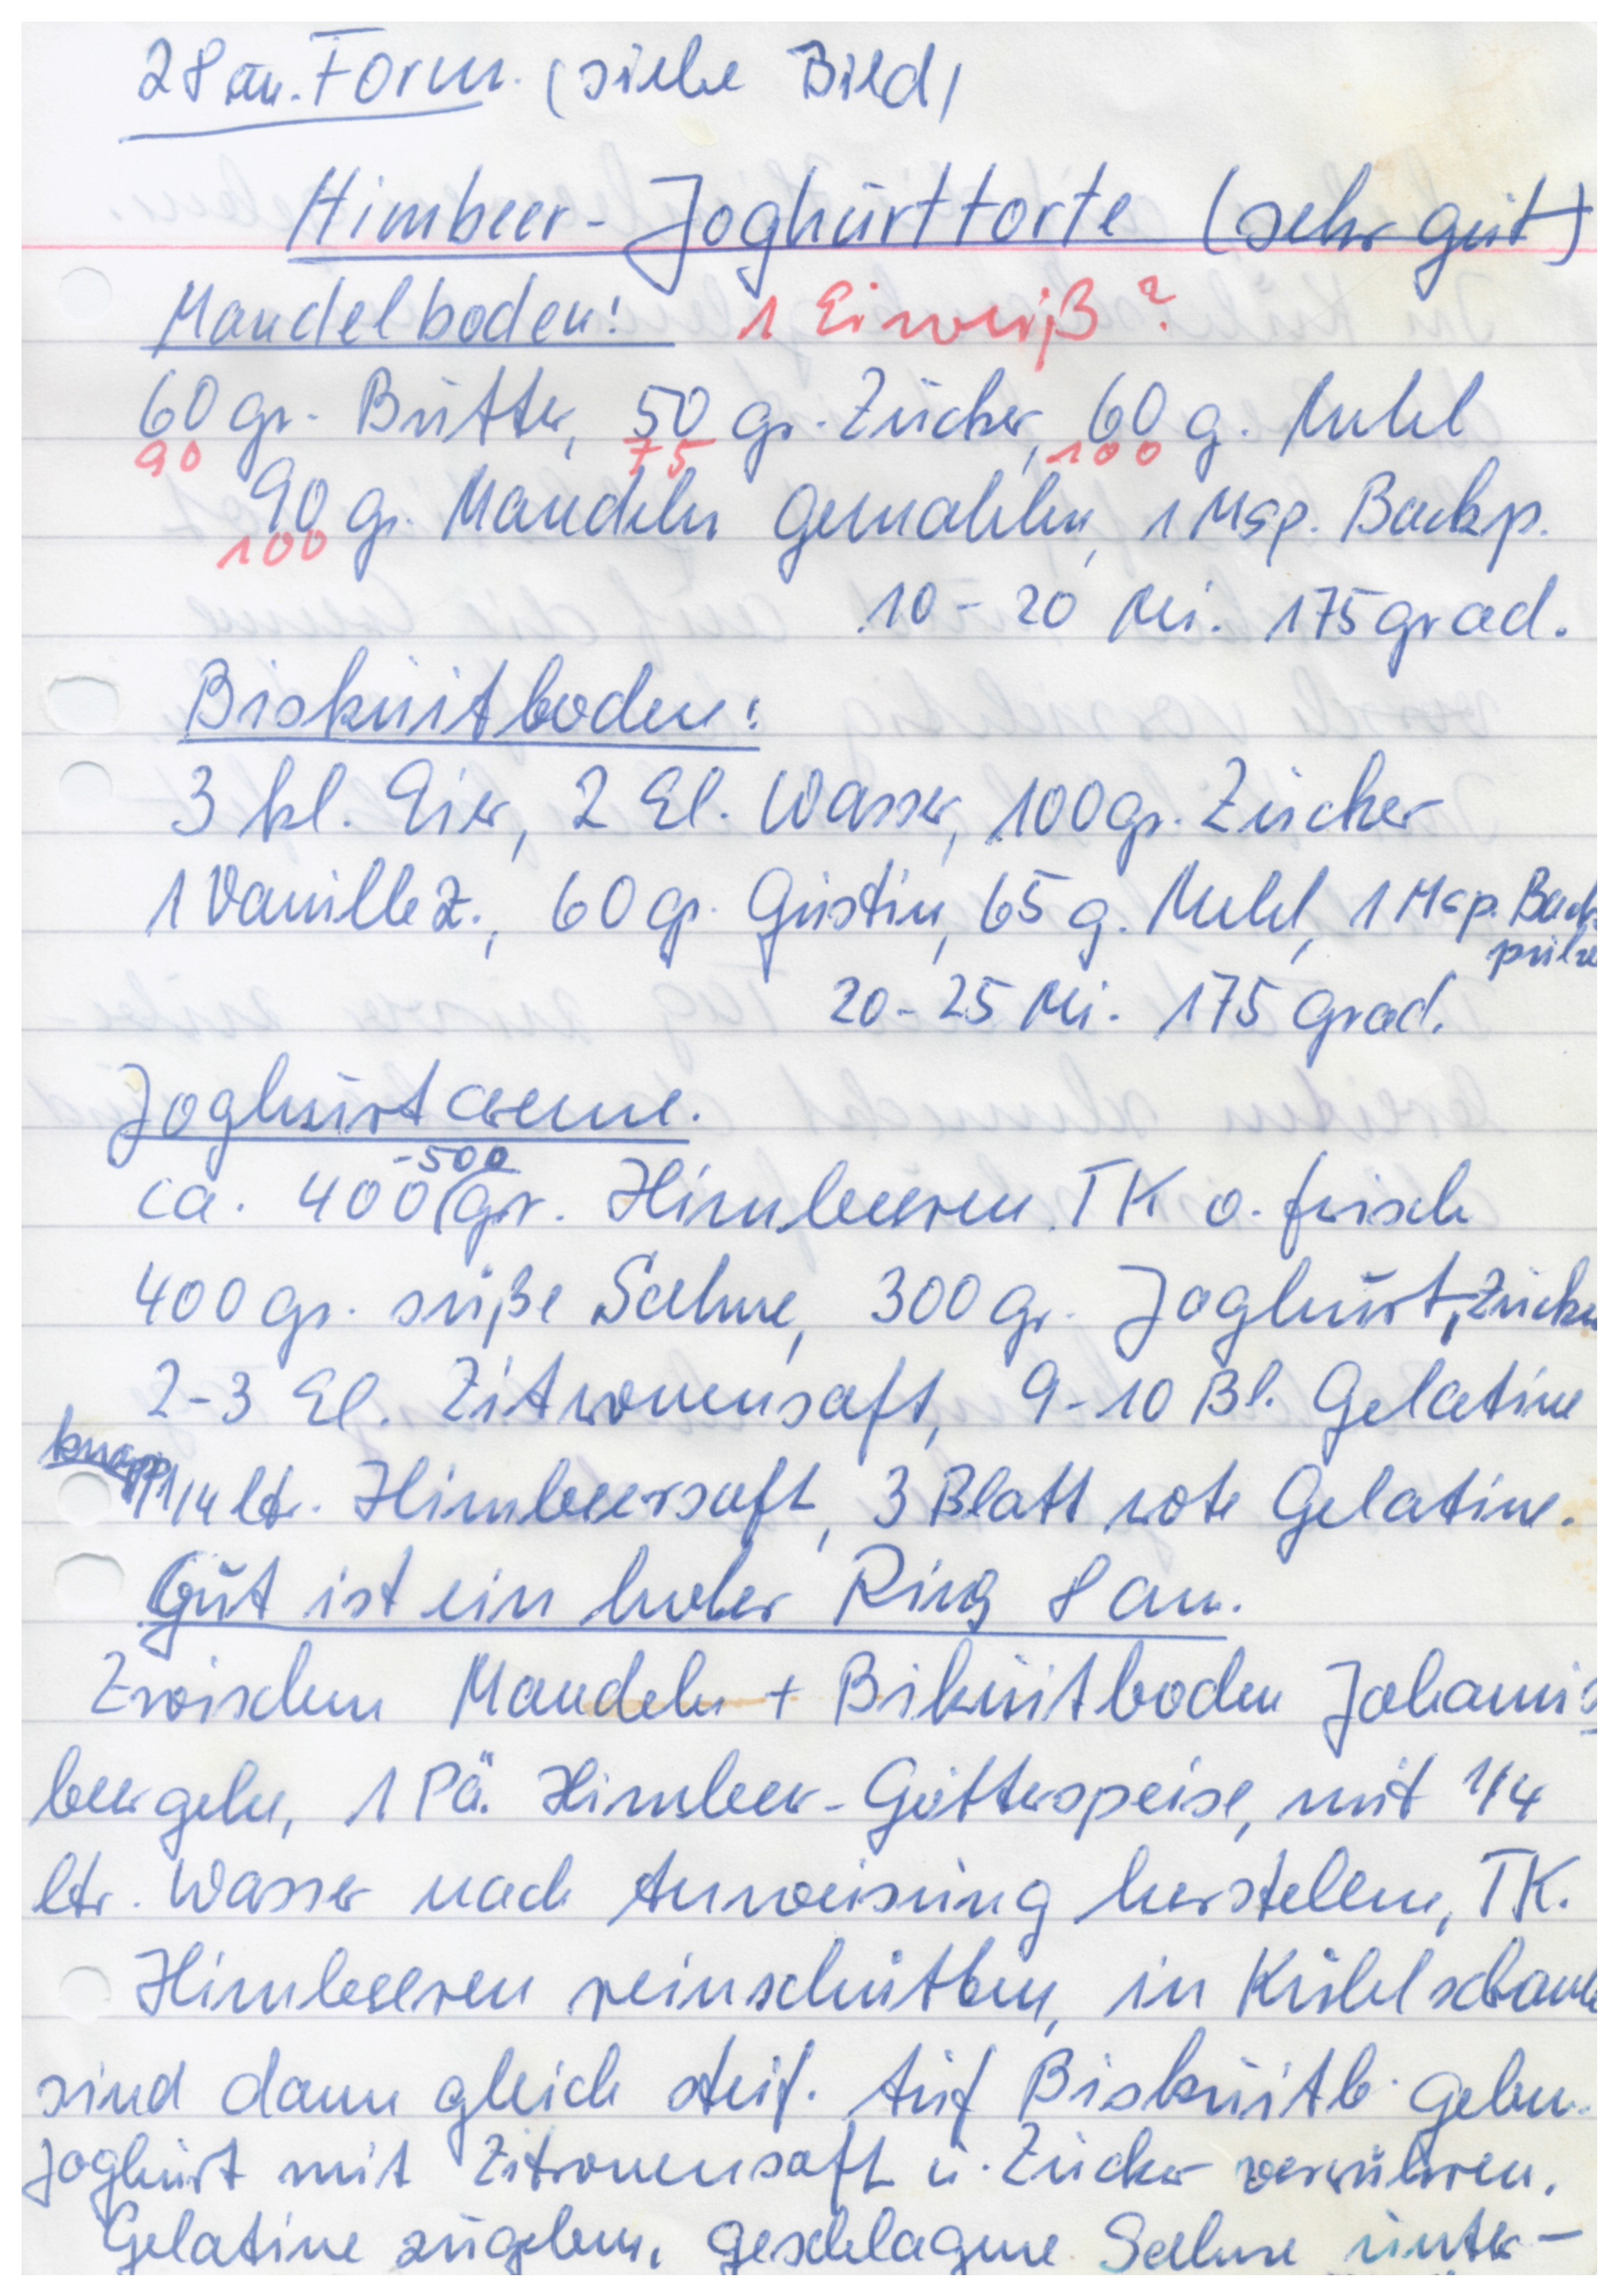 28 cm. Form. (siehe Bild)
Himbeer-Joghurttorte (sehr gut)
Mandelboden: 1 Eiweiß?
60 gr. Butter, 50 gr. Zucker, 60 g. Mehl
90 75 100
90 g. Mandeln gemahlen, 1 Msp. Backp.
100
10-20 Mi. 175 grad.
Biskuitboden:
3 kl. Eier, 2 El. Wasser, 100 gr. Zucker
1 Vanillez., 60 gr. Gustin, 65 g. Mehl, 1 Msp. Back
pulve
20-25 Mi. 175 grad.
Joghurtcreme.
-500
ca. 400 gr. Himbeeren TK o. frisch
400 gr. süße Sahne, 300 gr. Joghurt, Zucker
2-3 El. Zitronensaft, 9-10 Bl. Gelatine
knapp 1/4 ltr. Himbeersaft, 3 Blatt rote Gelatine.
Gut ist ein hoher Ring 8 cm.
Zwischen Mandeln + Bikuitboden Johannis
beergele, 1 Pä. Himbeer-Götterspeise, mit 1/4
ltr. Wasser nach Anweisung herstellen, TK.
Himbeeren reinschütten, in Kühlschrank
sind dann gleich steif. Auf Biskuitb. geben.
Joghurt mit Zitronensaft u. Zucker verrühren.
Gelatine zugeben, geschlagene Sahne unter-